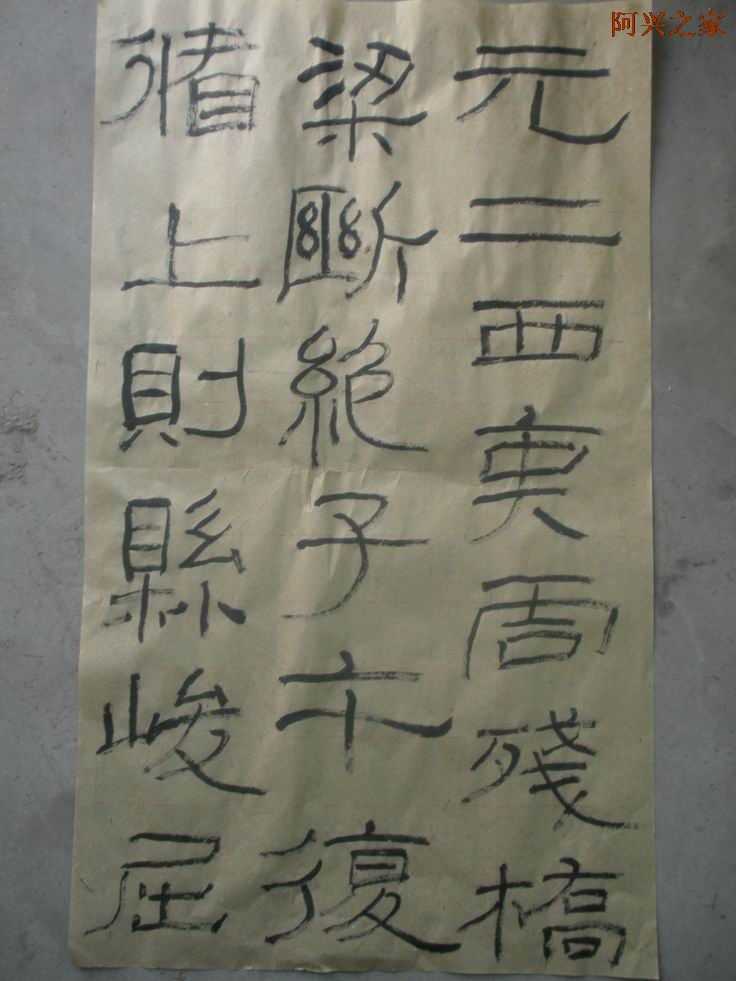 阿兴之家
元二西夷虐殘橋
梁斷絕子午復
循上則縣峻屈